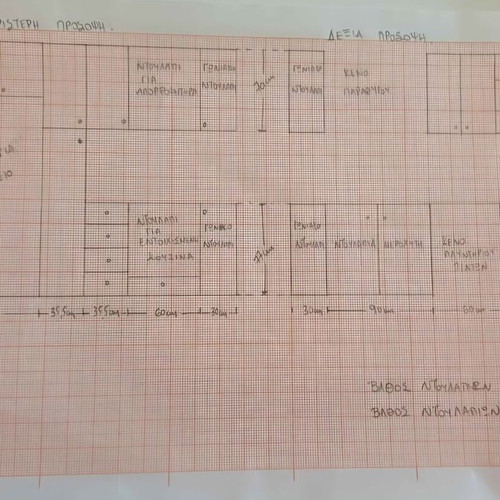 ΡΙΣΤΕΡΗ ΠΡΟΣΟΨΗ.
ΔΕΞΙΑ ΠΡΟΣΟΨΗ.
ΝΤΟΥΛΑΠΙ
ΓΙΑ
ΑΠΟΡΡΟΦΗΤΗΡΑ
ΓΩΝΙΑΚΟ
ΝΤΟΥΛΑΠΙ
70cm
ΓΩΝΙΑΚΟ
ΝΤΟΥΛΑΠΙ
ΚΕΝΟ
ΠΑΡΑΘΥΡΟΥ
ΝΤΟΥΛΑΠΙ
ΓΙΑ
ΕΝΤΟΙΧΙΖΟΜΕΝΗ
ΚΟΥΖΙΝΑ
ΓΩΝΙΑΚΟ
ΝΤΟΥΛΑΠΙ
ΓΩΝΙΑΚΟ
ΝΤΟΥΛΑΠΙ
ΝΤΟΥΛΑΠΙΑ
ΝΕΡΟΧΥΤΗ
ΚΕΝΟ
ΠΛΥΝΤΗΡΙΟΥ
ΠΙΑΤΩΝ
35,5cm 35,5cm 60cm 30cm
30cm 90cm 60cm
ΒΑΘΟΣ ΝΤΟΥΛΑΠΙΩΝ
ΒΑΘΟΣ ΝΤΟΥΛΑΠΙΩΝ